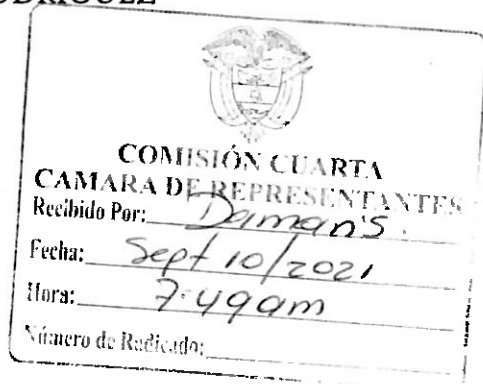 COMISIÓN CUARTA
CAMARA DE REPRESENTANTES
Recibido Por: Daman's.
Fecha: Sept 10/2021
Hora: 7:49am
Número de Radicado: